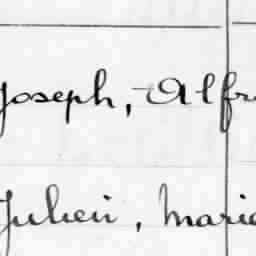 Joseph, Alfr
Julien, Marie